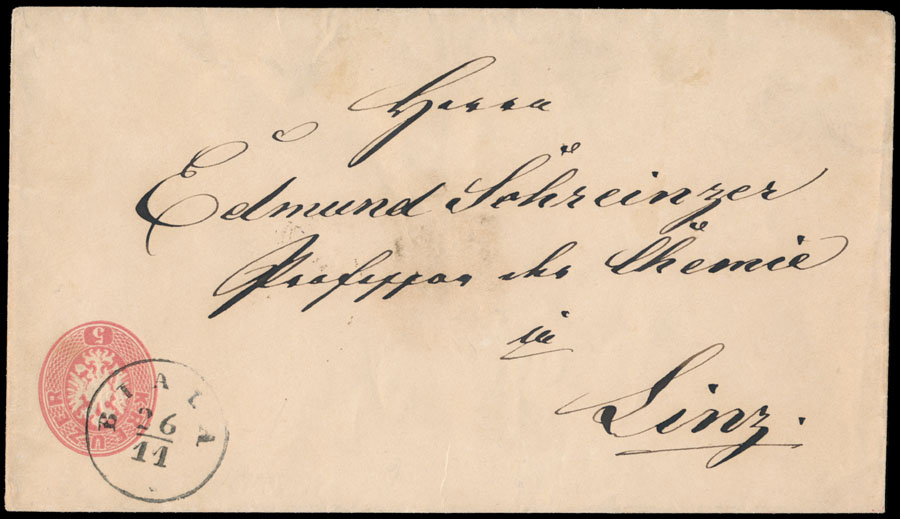 Herrn
Edmund Schreinzer
Professor der Chemie
in
Linz.
5
KREUZER
BIALA
26
11